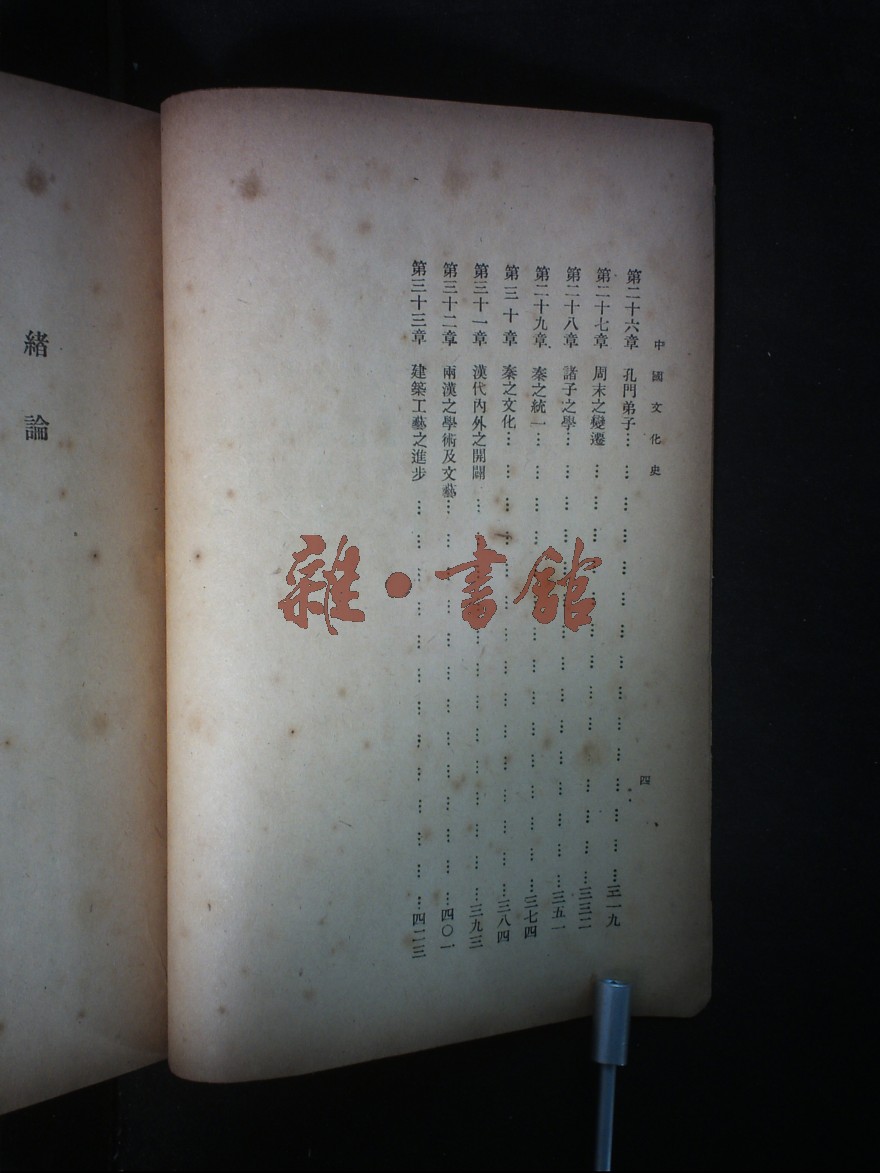 中國文化史
四
第二十六章 孔門弟子……三一九
第二十七章 周末之變遷……三三二
第二十八章 諸子之學……三五一
第二十九章 秦之統一……三七四
第三十章 秦之文化……三八四
第三十一章 漢代內外之開闢……三九三
第三十二章 兩漢之學術及文藝……四〇一
第三十三章 建築工藝之進步……四二三
緒論
雜·書館